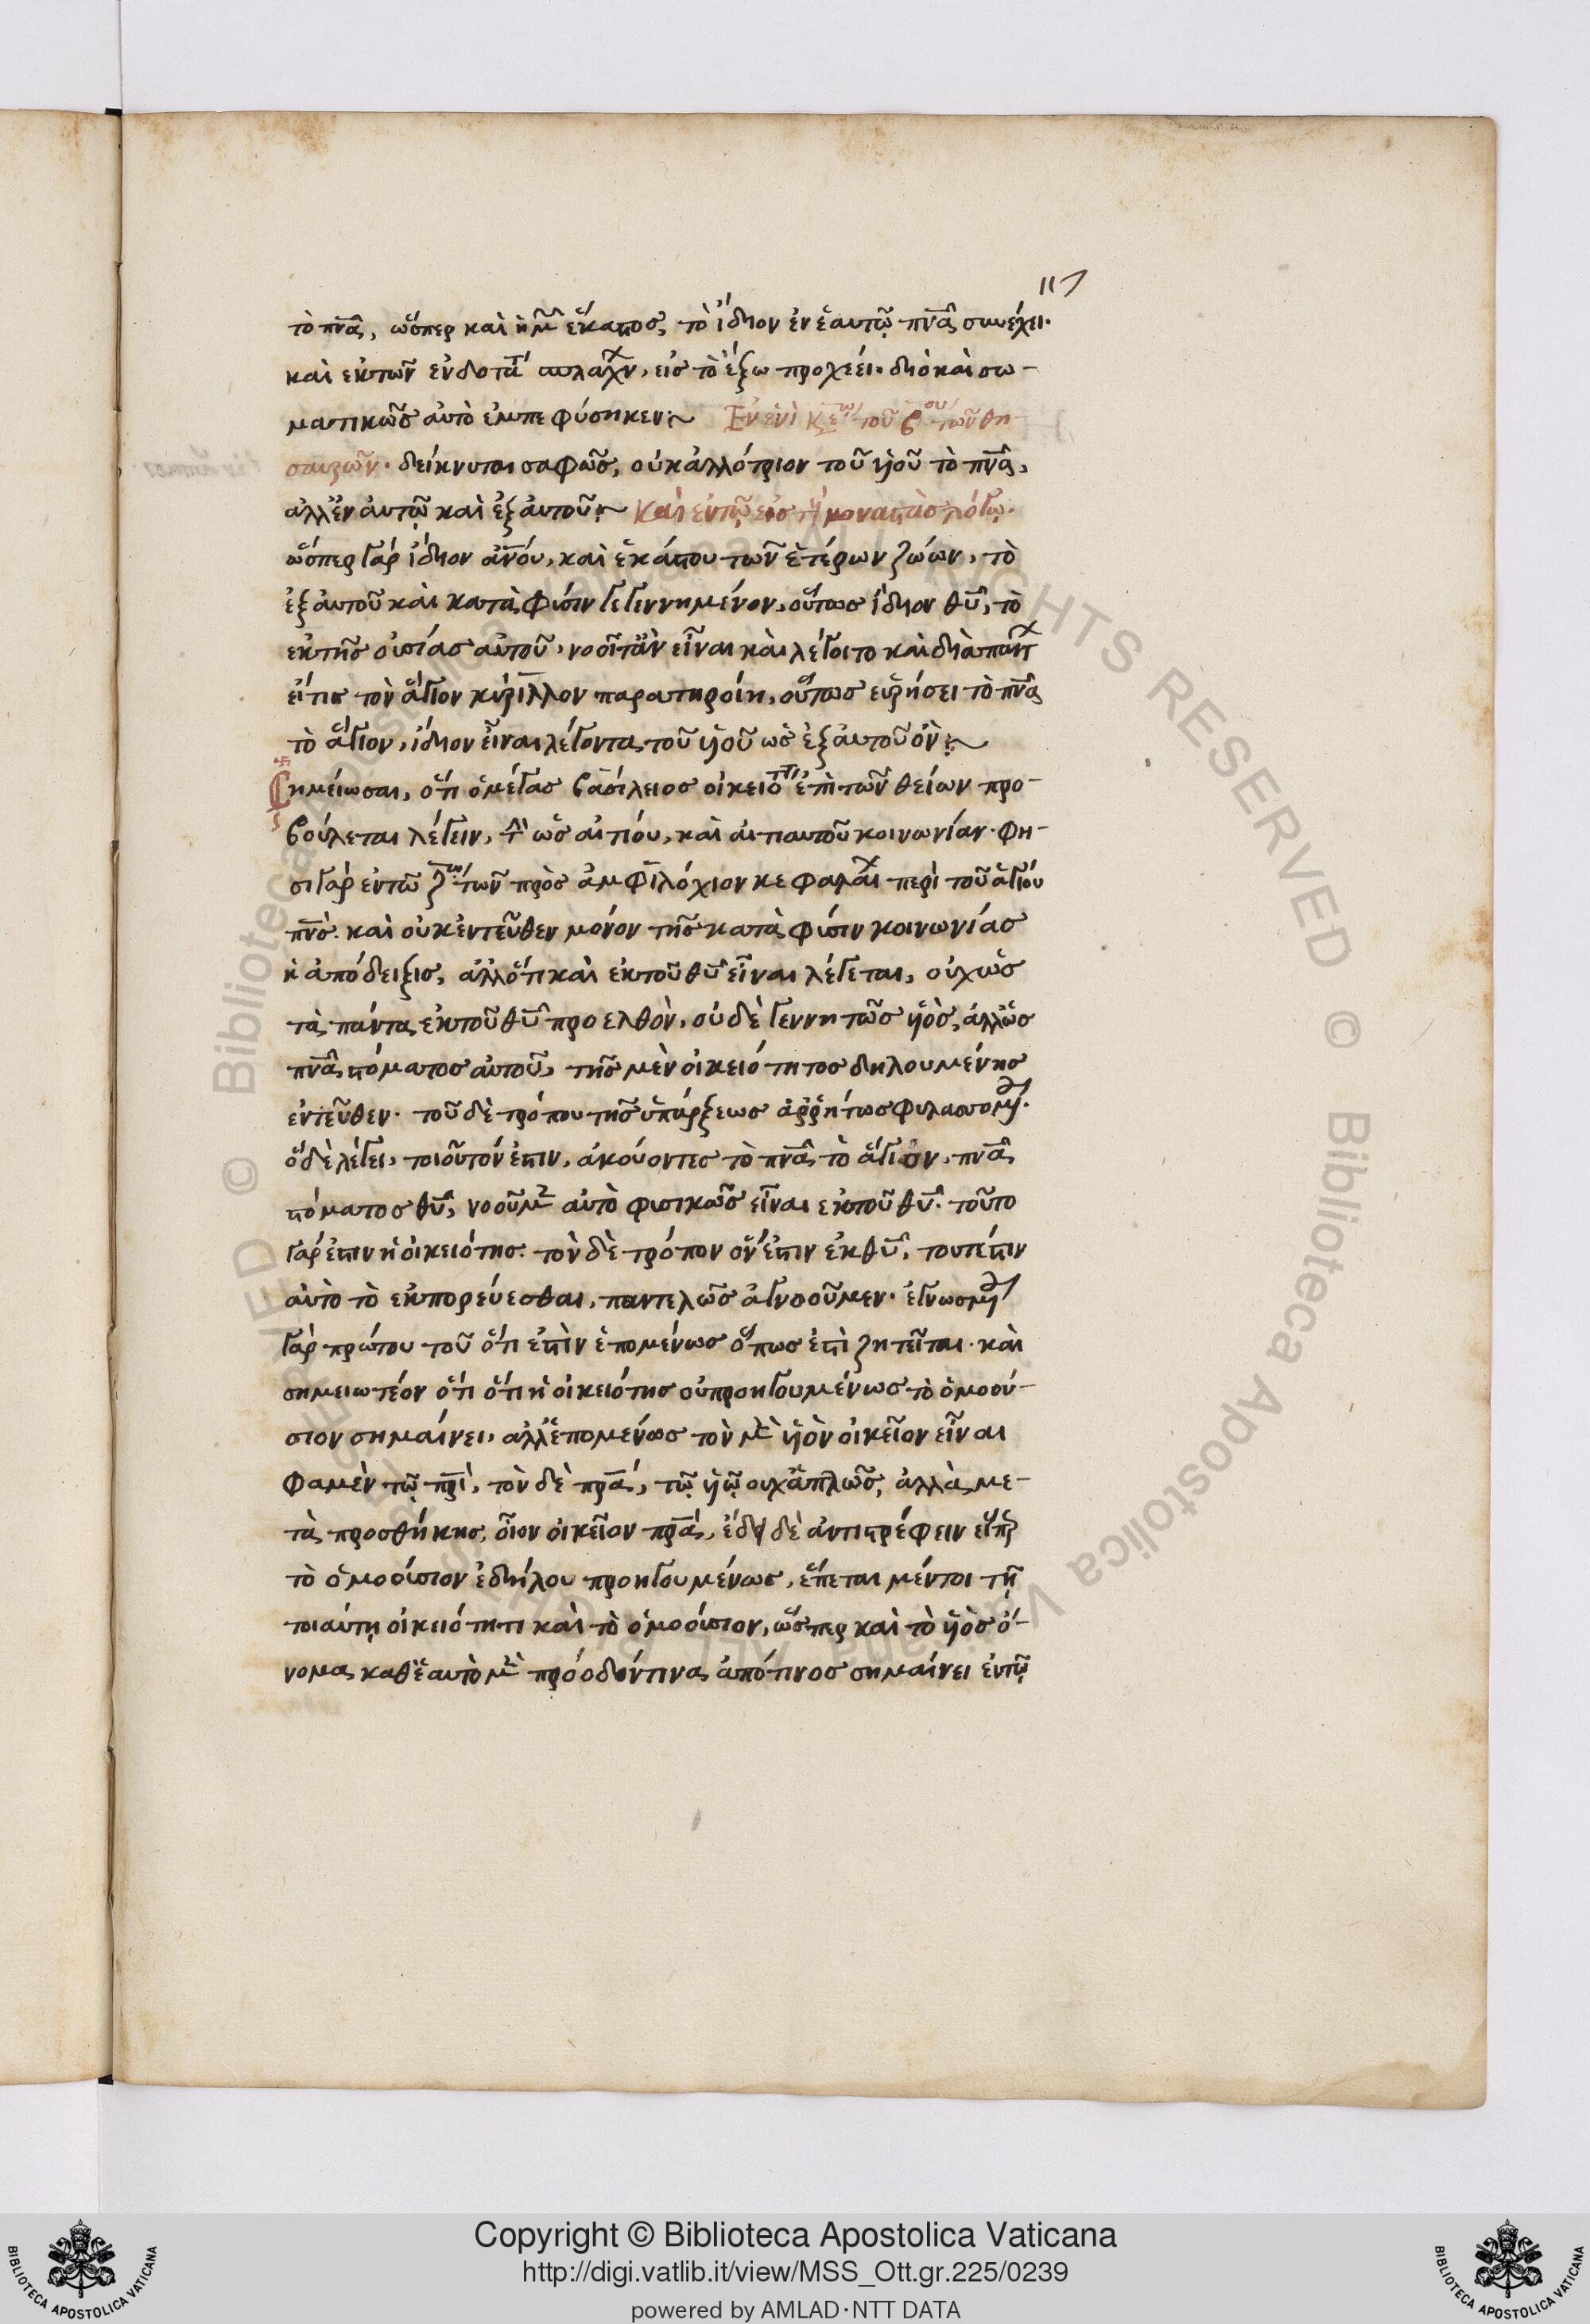 117
τὸ πνᾶ, ὥσπερ καὶ ἡμ ἕκαστος, τὸ ἴδιον ἐν ἑαυτῷ πνᾶ συνέχει.
καὶ ἐκ τῶν ἐνδοτά σπλάχν, εἰς τὸ ἔξω προχέει. διὸ καὶ σω-
ματικῶς αὐτὸ ἐμπεφύσηκεν :~ Ἐν ἑνὶ τοῦ τῶν θη-
σαυρῶν. δείκνυται σαφῶς, οὐκ ἀλλότριον τοῦ υἱοῦ τὸ πνᾶ,
ἀλλ' ἐν αὐτῷ καὶ ἐξ αὐτοῦ :~ Καὶ ἐν τῷ εἰς τὴν μοναστὰς λόγῳ.
ὥσπερ γὰρ ἴδιον ἀνόυ, καὶ ἑκάστου τῶν ἑτέρων ζώων, τὸ
ἐξ αὐτοῦ καὶ κατὰ φύσιν γεγεννημένον, οὕτως ἴδιον θῦ, τὸ
ἐκ τῆς οὐσίας αὐτοῦ, νοοῖτ' ἂν εἶναι καὶ λέγοιτο καὶ διαπαντ
εἴ τις τὸν ἅγιον κύριλλον παρατηροίη, οὕτως εὑρήσει τὸ πνᾶ
τὸ ἅγιον, ἴδιον εἶναι λέγοντα τοῦ υἱοῦ ὡς ἐξ αὐτοῦ ὄν :~
Σημείωσαι, ὅτι ὁ μέγας βασίλειος οἰκειότ ἐπὶ τῶν θείων προ-
βούλεται λέγειν, τὴν ὡς αἰτίου, καὶ αἰτιατοῦ κοινωνίαν. φη-
σὶ γὰρ ἐν τῶ τῶν πρὸς ἀμφιλόχιον κεφαλαί περὶ τοῦ ἁγίου
πνς. καὶ οὐκ ἐντεῦθεν μόνον τῆς κατὰ φύσιν κοινωνίας
ἡ ἀπόδειξις, ἀλλ' ὅτι καὶ ἐκ τοῦ θῦ εἶναι λέγεται, οὐχ ὡς
τὰ πάντα ἐκ τοῦ θῦ προελθὸν, οὐδὲ γεννητῶς ὡς ὑιὸς, ἀλλ' ὡς
πνᾶ στόματος αὐτοῦ, τῆς μὲν οἰκειότητος δηλουμένης
ἐντεῦθεν. τοῦ δὲ τρόπου τῆς ὑπάρξεως ἀρρήτως φυλασσομ.
ὃ δὲ λέγει, τοιοῦτόν ἐστιν, ἀκούοντες τὸ πνᾶ τὸ ἅγιον, πνᾶ
στόματος θῦ, νοοῦμ αὐτὸ φυσικῶς εἶναι ἐκ τοῦ θῦ. τοῦτο
γάρ ἐστιν ἡ οἰκειότης. τὸν δὲ τρόπον ὅν ἐστιν ἐκ θῦ, τουτέστιν
αὐτὸ τὸ ἐκπορεύεσθαι, παντελῶς ἀγνοοῦμεν. ἐγνωσμ
γὰρ πρώτου τοῦ ὅτι ἐστὶν ἑπομένως ὅπως ἐστὶ ζητεῖται. καὶ
σημειωτέον ὅτι ὅτι ἡ οἰκειότης οὐ προηγουμένως τὸ ὁμοού-
σιον σημαίνει, ἀλλ' ἑπομένως τὸν μὲ υἱὸν οἰκεῖον εἶναι
φαμὲν τῷ πρι, τὸν δὲ πρα, τῷ υἱῷ οὐχ ἁπλῶς, ἀλλὰ με-
τὰ προσθήκης, οἷον οἰκεῖον πρα, ἔδει δὲ ἀντιστρέφειν εἴπ
τὸ ὁμοούσιον ἐδήλου προηγουμένως, ἕπεται μέντοι τῇ
τοιαύτῃ οἰκειότητι καὶ τὸ ὁμοούσιον, ὥσπερ καὶ τὸ υἱὸς ὄ-
νομα καθ' ἑαυτὸ μὲ πρόοδόν τινα ἀπό τινος σημαίνει ἐν τῷ
Copyright © Biblioteca Apostolica Vaticana
http://digi.vatlib.it/view/MSS_Ott.gr.225/0239
powered by AMLAD·NTT DATA